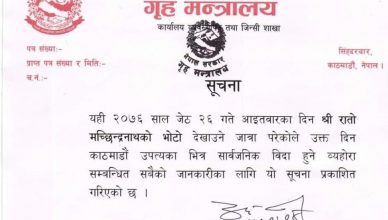 गृह मन्त्रालय
कार्यालय व्यवस्थापन तथा जिन्सी शाखा
पत्र संख्याः-
प्राप्त पत्र संख्या र मितिः-
च.नं.:-
सिंहदरबार,
काठमाडौं, नेपाल।
नेपाल सरकार
गृह मन्त्रालय
सूचना
यही २०७६ साल जेठ २६ गते आइतबारका दिन श्री रातो
मच्छिन्द्रनाथको भोटो देखाउने जात्रा परेकोले उक्त दिन
काठमाडौं उपत्यका भित्र सार्वजनिक बिदा हुने व्यहोरा
सम्बन्धित सबैको जानकारीका लागि यो सूचना प्रकाशित
गरिएको छ ।